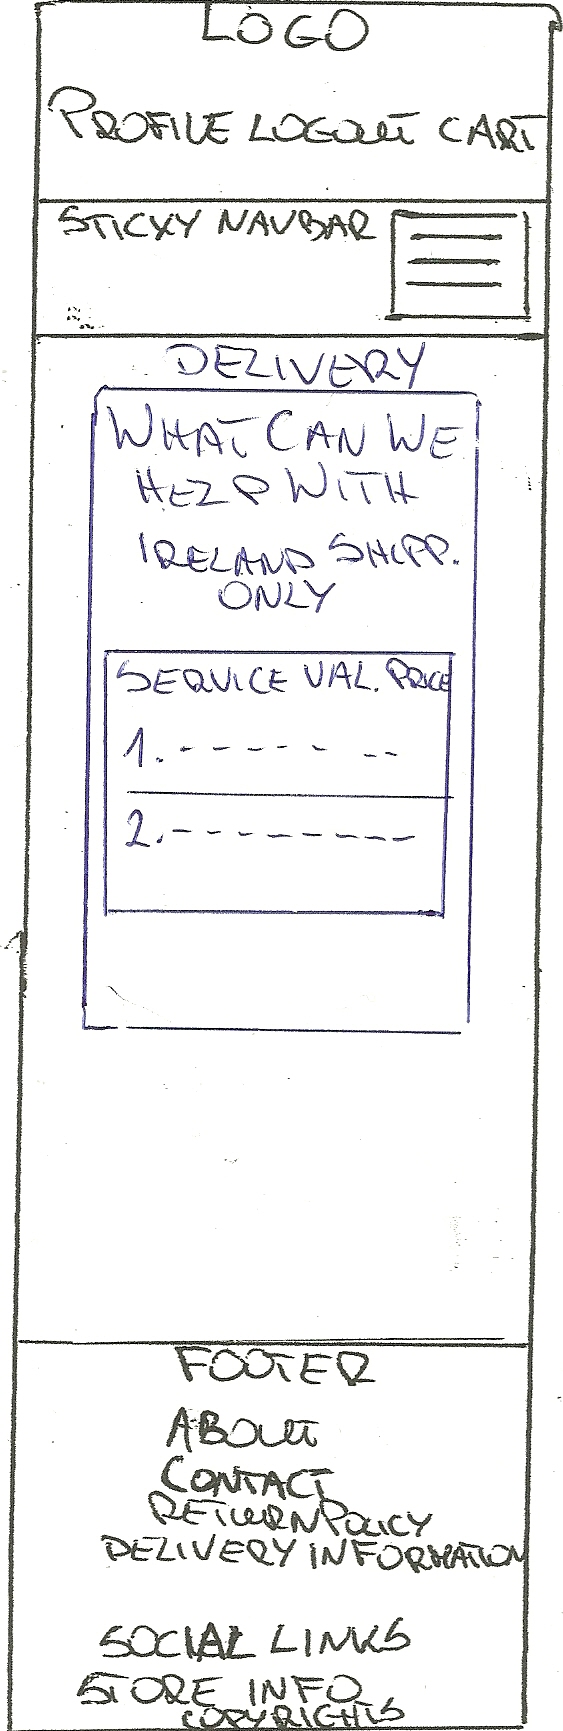 LOGO
PROFILE LOGOUT CART
STICKY NAVBAR
DELIVERY
WHAT CAN WE
HELP WITH
IRELAND SHIPP.
ONLY
SERVICE VAL. PRICE
1.------
2.---------
FOOTER
ABOUT
CONTACT
RETURN POLICY
DELIVERY INFORMATION
SOCIAL LINKS
STORE INFO
COPYRIGHTS